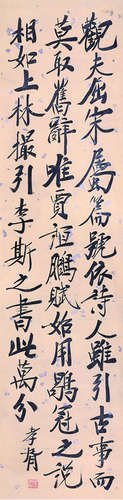 觀夫屈宋屬篇號依詩人雖引古事而
莫取舊辭唯賈誼鵩賦始用鶡冠之說
相如上林撮引李斯之書此萬分
孝胥